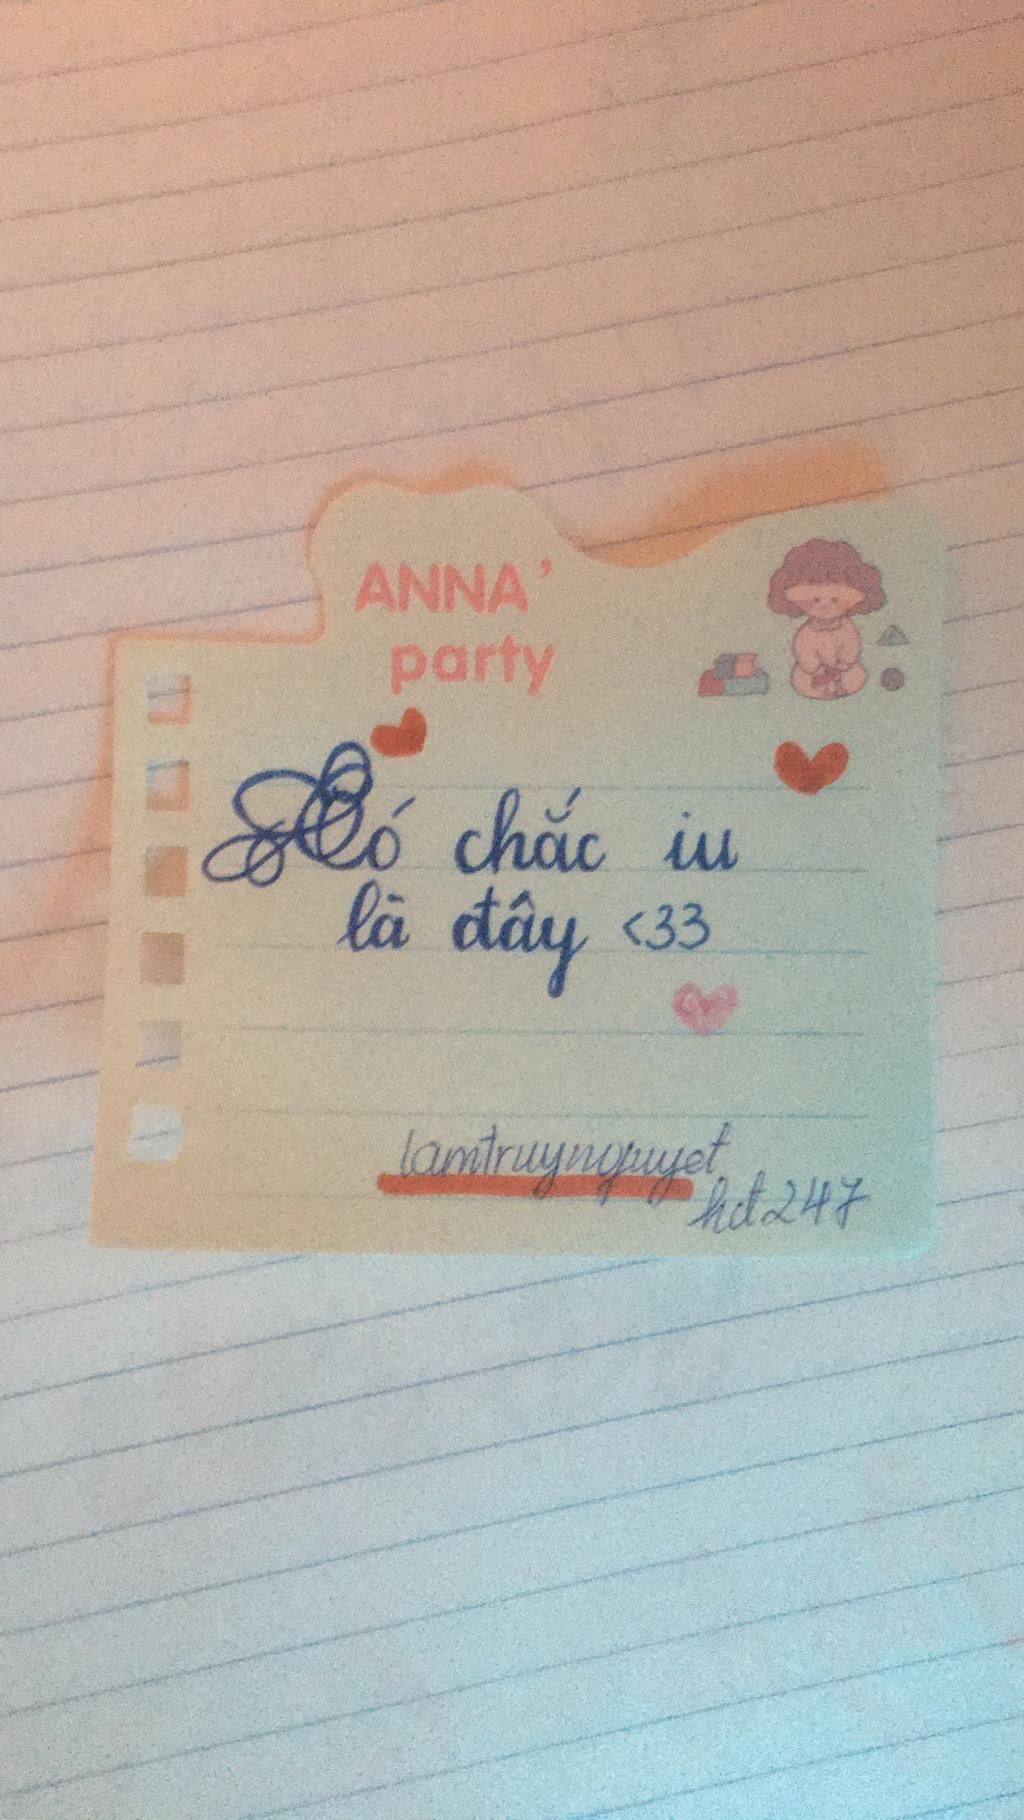 ANNA'
party
Có chắc iu
là đây <33
lamtruynguyet
hđ247